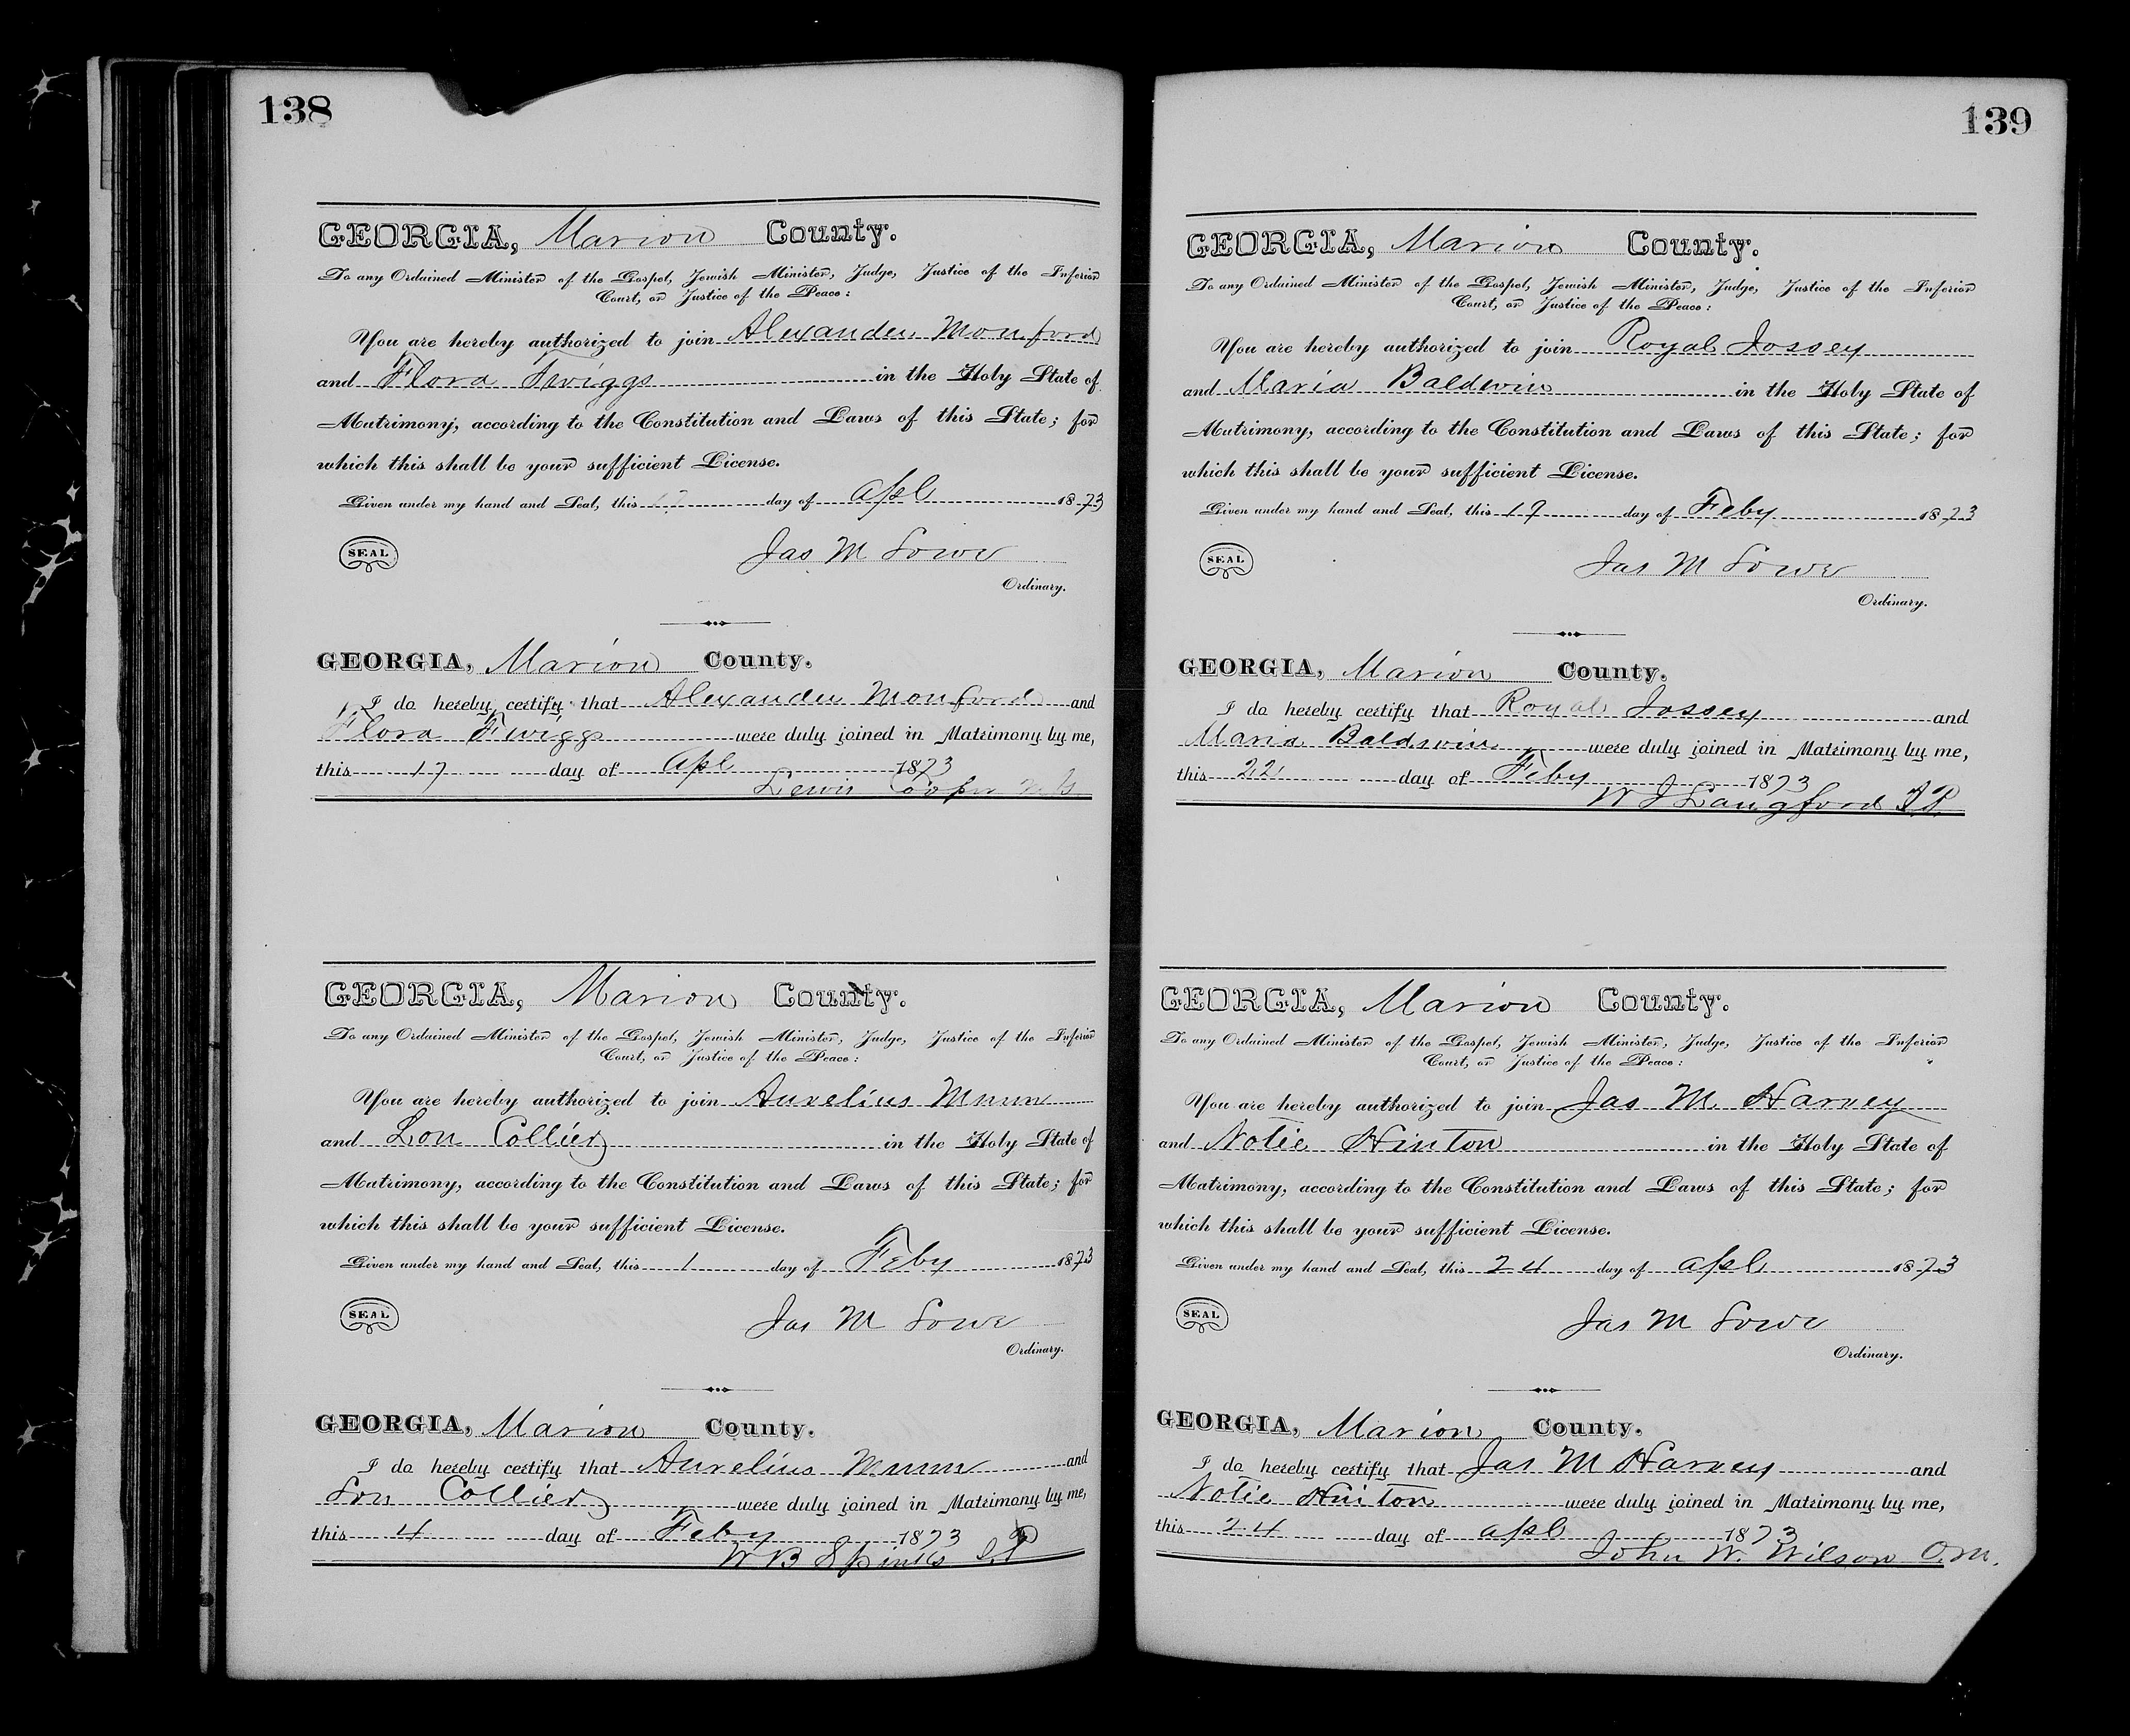 138
GEORGIA, Marion County.
To any Ordained Minister of the Gospel, Jewish Minister, Judge, Justice of the Inferior
Court, or Justice of the Peace:
You are hereby authorized to join Alexander Monford
and Flora Twiggs in the Holy State of
Matrimony, according to the Constitution and Laws of this State; for
which this shall be your sufficient License.
Given under my hand and Seal, this 17 day of Apl 1873
SEAL
Jas M Lowe
Ordinary.
GEORGIA, Marion County.
I do hereby certify that Alexander Monford and
Flora Twiggs were duly joined in Matrimony by me,
this 17 day of Apl 1873
Lewis Cooper
GEORGIA, Marion County.
To any Ordained Minister of the Gospel, Jewish Minister, Judge, Justice of the Inferior
Court, or Justice of the Peace:
You are hereby authorized to join Aurelius Munn
and Lou Collier in the Holy State of
Matrimony, according to the Constitution and Laws of this State; for
which this shall be your sufficient License.
Given under my hand and Seal, this 1 day of Feby 1873
SEAL
Jas M Lowe
Ordinary.
GEORGIA, Marion County.
I do hereby certify that Aurelius Munn and
Lou Collier were duly joined in Matrimony by me,
this 4 day of Feby 1873
W B Spinks J.P
139
GEORGIA, Marion County.
To any Ordained Minister of the Gospel, Jewish Minister, Judge, Justice of the Inferior
Court, or Justice of the Peace:
You are hereby authorized to join Royal Jossey
and Maria Baldwin in the Holy State of
Matrimony, according to the Constitution and Laws of this State; for
which this shall be your sufficient License.
Given under my hand and Seal, this 19 day of Feby 1873
SEAL
Jas M Lowe
Ordinary.
GEORGIA, Marion County.
I do hereby certify that Royal Jossey and
Maria Baldwin were duly joined in Matrimony by me,
this 22 day of Feby 1873
W J Langford J.P.
GEORGIA, Marion County.
To any Ordained Minister of the Gospel, Jewish Minister, Judge, Justice of the Inferior
Court, or Justice of the Peace:
You are hereby authorized to join Jas M. Harvey
and Notie Hinton in the Holy State of
Matrimony, according to the Constitution and Laws of this State; for
which this shall be your sufficient License.
Given under my hand and Seal, this 24 day of Apl 1873
SEAL
Jas M Lowe
Ordinary.
GEORGIA, Marion County.
I do hereby certify that Jas M Harvey and
Notie Hinton were duly joined in Matrimony by me,
this 24 day of Apl 1873
John W. Wilson O.M.